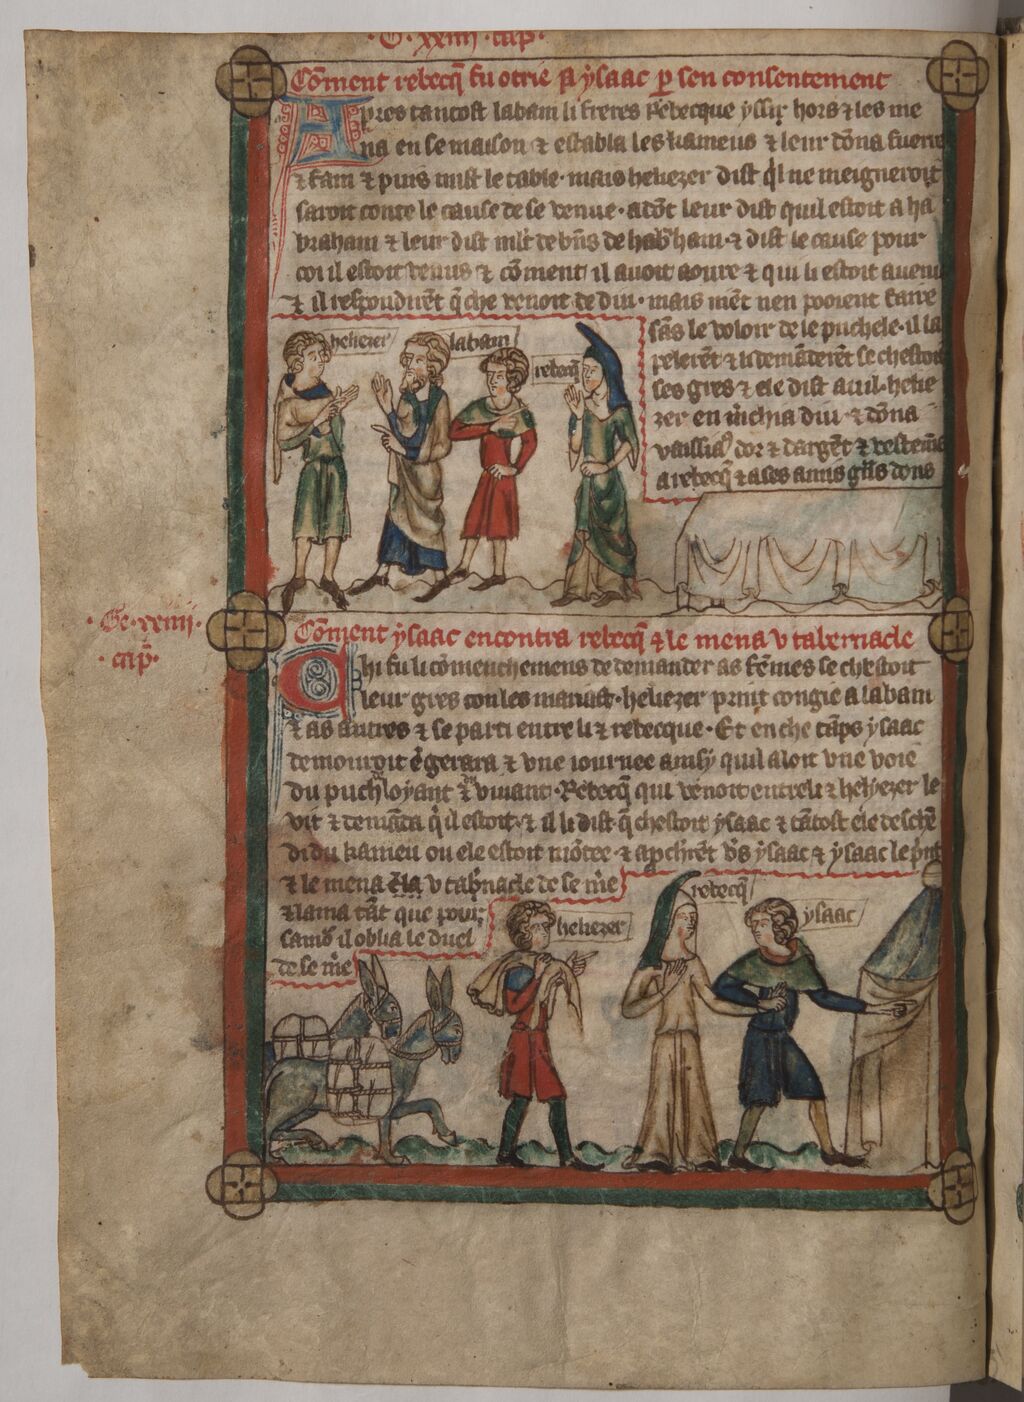 G. xxiiii. cap.
Cōment rebecq̄ fu otrie A ysaac ꝑ sen consentement
Apres tantost labam li freres Rebecque yssir hors ⁊ les me
na en se maison ⁊ establa les kameus ⁊ leur dōna fuerre
⁊ fain ⁊ puis mist le table. mais heliezer dist q̄l ne meigneroit
saroit conte le cause de se venue. adōt leur dist quil estoit a ha
braham ⁊ leur dist mlt de bn̄s de habˀham. ⁊ dist le cause pour
coi il estoit venus ⁊ cōment il auoit aoure ⁊ qui li estoit auenu
⁊ il respondirēt q̄ che venoit de diu. mais mēt nen pooient faire
sās le voloir de le puchele. il la
pelerēt ⁊ li demāderēt se chestoit
ses gres ⁊ ele dist auil. helie
zer en mˀchia diu. ⁊ dōna
vaissiaˀ dor ⁊ dargēt ⁊ vestemēs
a rebecq̄ ⁊ a ses amis gˀns dons
heliezer
labam
rebecq̄
. Ge. xxiiii.
. cap̄.
Cōment ysaac encontra rebecq̄ ⁊ le mena v tabernacle
Chi fu li cōmenchemens de demander as fēmes se chestoit
leur gres con les mariast. heliezer prinst congie a labam
⁊ as autres ⁊ se parti entre li ⁊ rebecque. Et en che tāps ysaac
demouroit ē gerara ⁊ vne iournee ainsy quil aloit vne voie
du puch loyant ⁊ viuant. Rebecq̄ qui venoit entre li ⁊ helyezer le
vit ⁊ demāda qˀ il estoit ⁊ il li dist q̄ chestoit ysaac ⁊ tātost ele deschē
di du kameu ou ele estoit mōtee. ⁊ apchˀēt vˀs ysaac ⁊ ysaac le prist
⁊ le mena v tabˀnacle de se mˀe
⁊ lama tāt que pour
samoˀ il oblia le duel
de se mˀe
heliezer
rebecq̄
ysaac